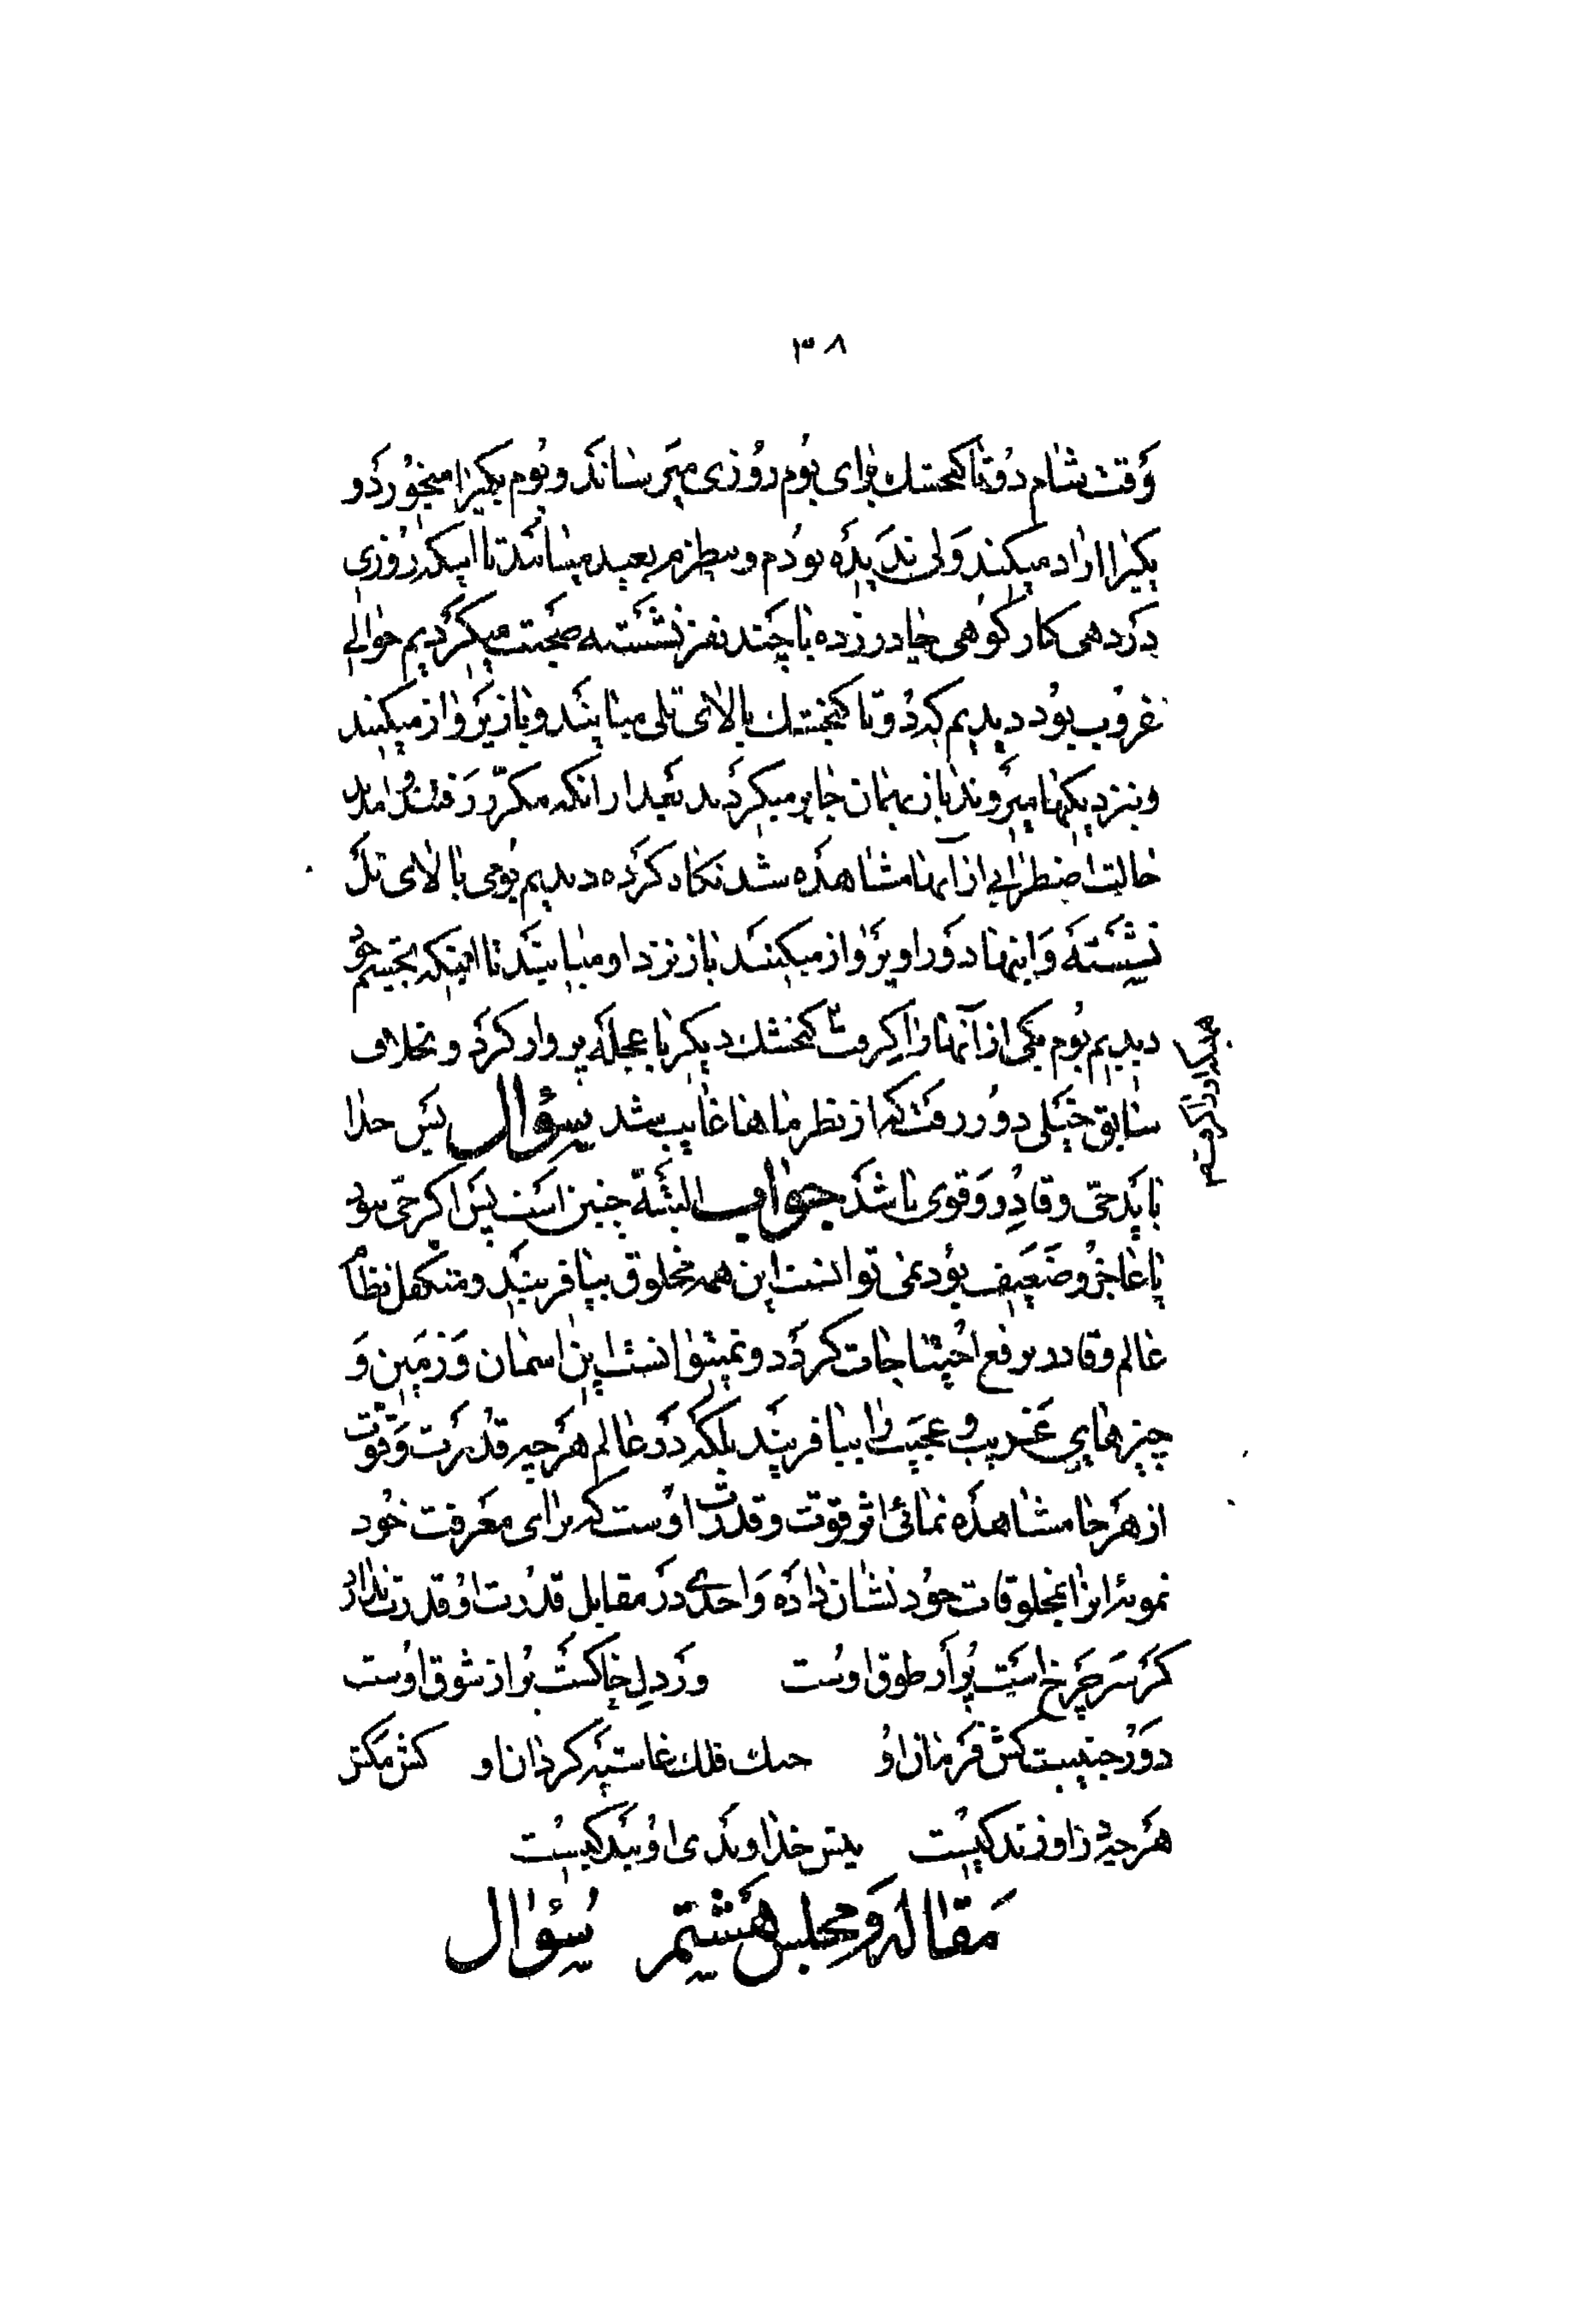 ۳۸
وَقت شام دُوتا کنجشك برای بُوم روُزی میَرساند و بُوم یکیرا میخوُرَد و
یکیرا ازاد میکند وَلی ندَیدَه بودُم و بنظرم بعید میامَد تا اینکه رُوزی
دَر دهی کنار کوُهی چادر زده با چَند نفر نشَسته صحبت میکرَدیم حوالی
غروُب بوُد دیدیم که دُوتا کنجشك بالای تلی میایَند و باز پَرواز میکنند
و نزدیکها میرَوند باز بهمان جا بر میکردَند بَعد از انکه مکرّر رَفتند و امدند
حالت اضطرابی از آنها مشاهدَه شد نکاه کرَده دیدیم بوُمی بالای تلَ
نشَستَه وَ اینها دَور او پَرواز میکنَند باز نزد او میایَند تا اینکه بچَشم خوُد
دیدیم بوُم یکی از آنها را کرفت کنجشك دیکر با عجلَه پرواز کرَد و بخلاف
سابق خَیلی دوُر رفت که از نظر ماها غایب شد سؤال پَس خدا
بایَد حیّ و قادِر وَ قوی باشَد جواب البتَّه چنین است پَس اکر حیّ نبود
یا عاجز وُ ضَعیف بوُد نمی توانست این همه مخلوق بیافرینَد و متکفل نظام
عالم و قادر بر رفع احتیاجات کرَدَد و نمیتوانست این اسمان وَ زمَین وَ
چیزهای غَریب و عجیَب را بیافرینَد بلکه دَر عالم هَر چه قدُرَت وَ قوُت
از هَر جا مشاهدَه نمائی اثر قوّت و قدرت اوُست که برای معَرفت خوُد
نمونه انرا بمخلوقات خوُد نشان دادَه وَ احدی دَر مقابل قدُرت اوُ قدرت ندارد
کرَ سَر چَرخ اسَت پُر از طوق اوُست وَر دلِ خاکسَت پر از شوق اوُست
دوَر جنیبت کش فَرمان اوُ فلك غاشیَه کردان او
هَر چه جز او زند کیسُت
مَقاله وَ مجلس هَشتم سُؤال